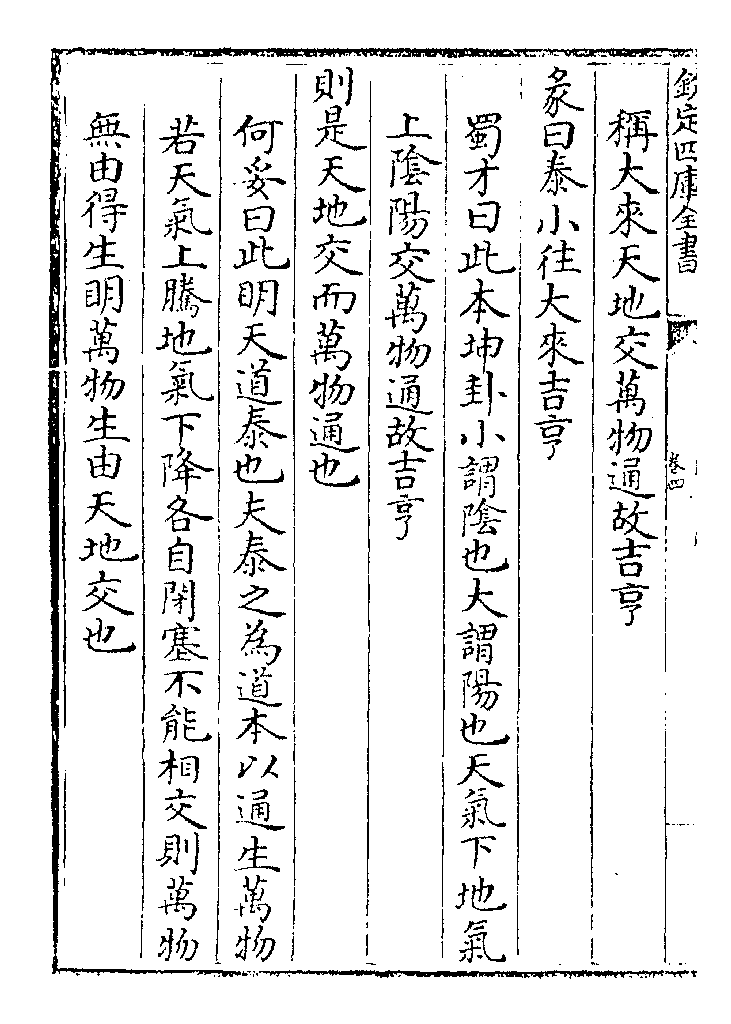 欽定四庫全書
卷四
稱大來天地交萬物通故吉亨
彖曰泰小往大來吉亨
蜀才曰此本坤卦小謂陰也大謂陽也天氣下地氣
上陰陽交萬物通故吉亨
則是天地交而萬物通也
何妥曰此明天道泰也夫泰之為道本以通生萬物
若天氣上騰地氣下降各自閉塞不能相交則萬物
無由得生明萬物生由天地交也